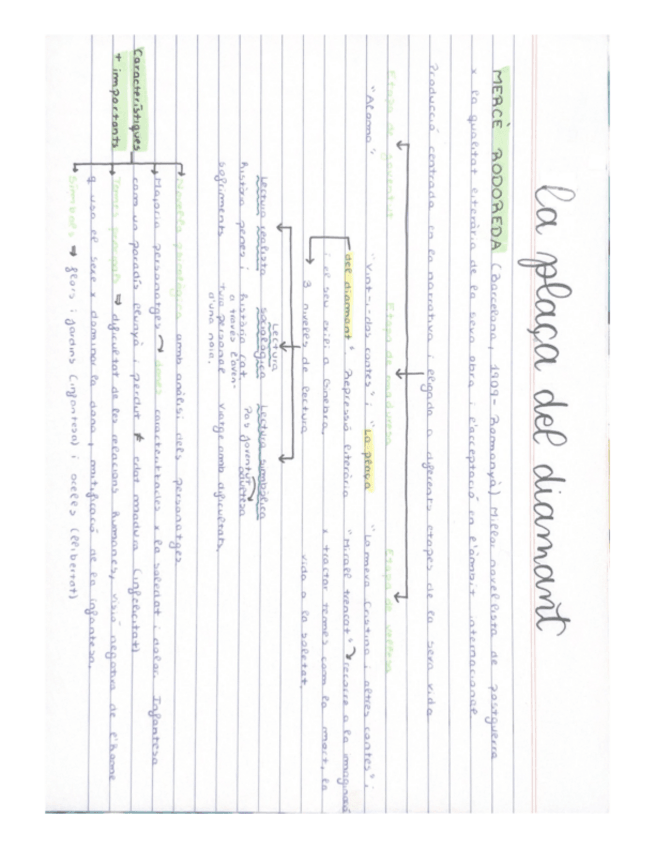 la plaça del diamant
MERCÈ RODOREDA (Barcelona, 1909- Romanyà) Millor novel·lista de postguerra
x la qualitat literària de la seva obra i l'acceptació en l'àmbit internacional
Producció centrada en la narrativa i lligada a diferents etapes de la seva vida
Etapa de joventut
Etapa de maduresa
Etapa de vellesa
"Aloma"
"Vint-i-dos contes" i "La plaça
del diamant". Repressió literària
i el seu exili a Ginebra.
"La meva Cristina i altres contes" i
"Mirall trencat" recorre a la imaginació
x tractar temes com la mort, la
vida o la soletat.
3 nivells de lectura
Lectura realista
història penes i
sofriments
Lectura
sociològica
història cat.
a través l'aven-
tura personal
d'una noia.
Lectura simbòlica
Pas joventut
adultesa
Viatge amb dificultats.
Característiques
+ importants
Novel·la psicològica amb anàlisi dels personatges
Majoria personatges dones caracteritzades x la soledat i dolor. Infantesa
com un paradís llunyà i perdut ≠ edat madura (infelicitat)
Temes principals ➡ dificultat de les relacions humanes, visió negativa de l'home
q usa el sexe x dominar la dona, mitificació de la infantesa.
Símbols ➡ flors i jardins (infantesa) i ocells (llibertat)